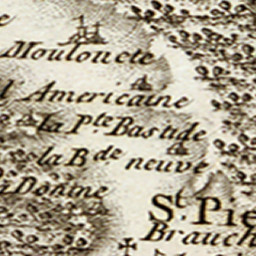 Mouloucte
Americaine
la Pte Bastide
la Bde neuve
St. Pie
Brauch